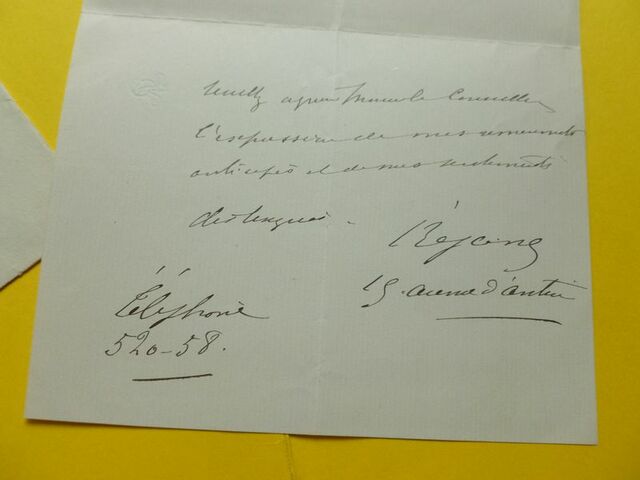 Veuillez agréer Monsieur le Conseiller
l'expression de mes remerciements
anticipés et de mes sentiments
distingués.
Réjane
15 avenue d'antin
Téléphone
520-58.